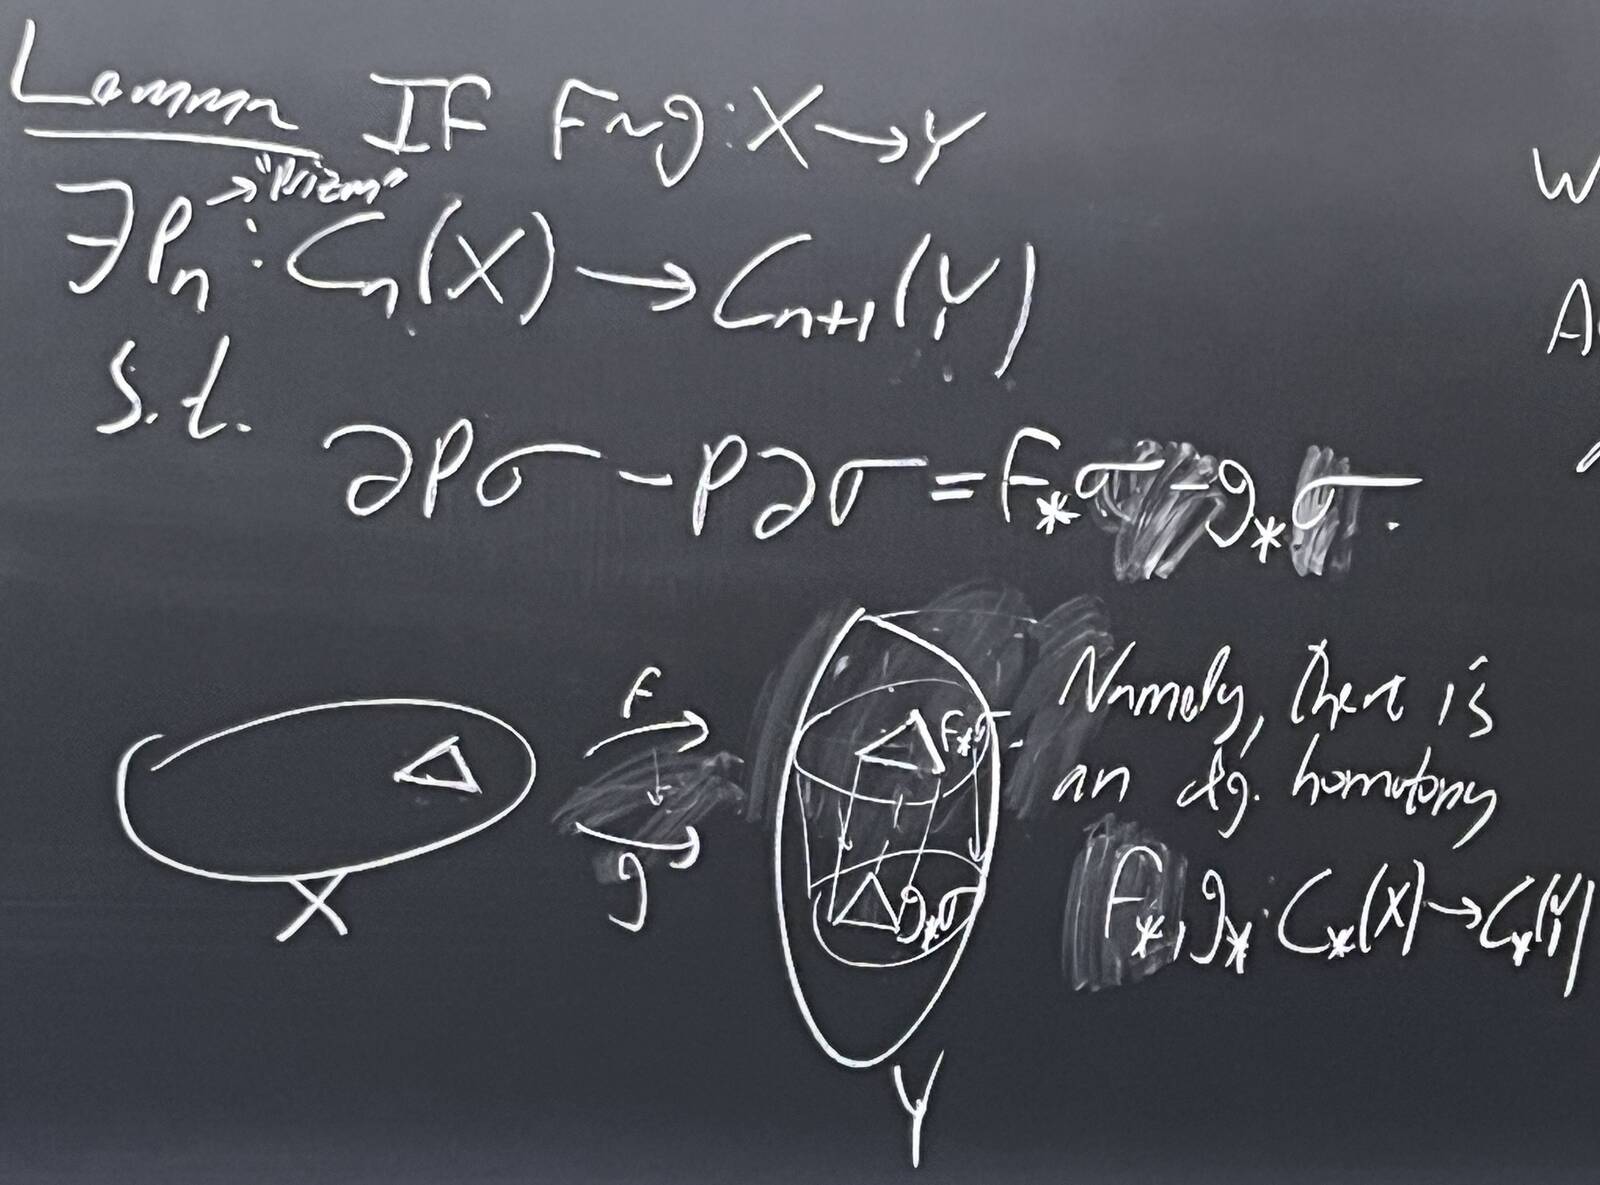 Lemma If f~g: X → Y
→ "Prizm"
∃ Pₙ : Cₙ(X) → Cₙ₊₁(Y)
s.t.
∂Pσ - P∂σ = f_*σ - g_*σ.
f
g
X
f_*σ
g_*σ
Y
Namely, there is
an alg. homotopy
f_*, g_*: C_*(X) → C_*(Y)
W
A